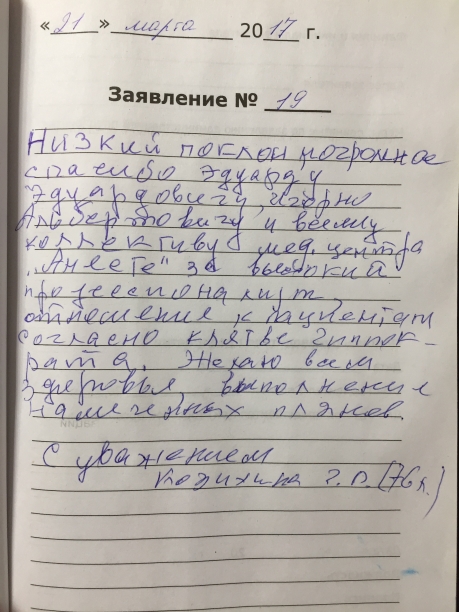 «21» марта 2017 г.
Заявление № 19
Низкий поклон и огромное
спасибо Эдуарду
Эдуардовичу, Игорю
Альбертовичу и всему
коллективу мед. центра
за высокий
профессионализм,
отношение к пациентам
согласно клятве Гиппок-
рата. Желаю всем
здоровья выполнения
намеченных планов.
С уважением
Г. П. (76 л.)